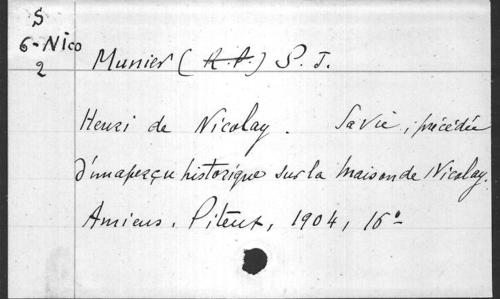 S
6-Nico
2
Munier (R. P.) S. J.
Henri de Nicolay. Sa vie, précédée
d'un aperçu historique sur la maison de Nicolay.
Amiens. Piteux, 1904, 16°